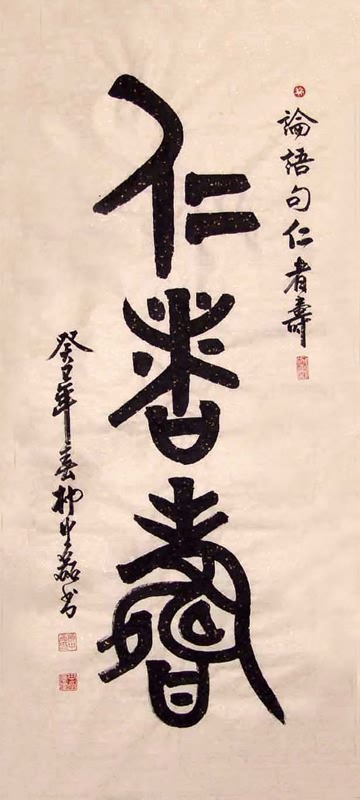 論語句仁者壽
仁者壽
癸巳年春柳中嶽书